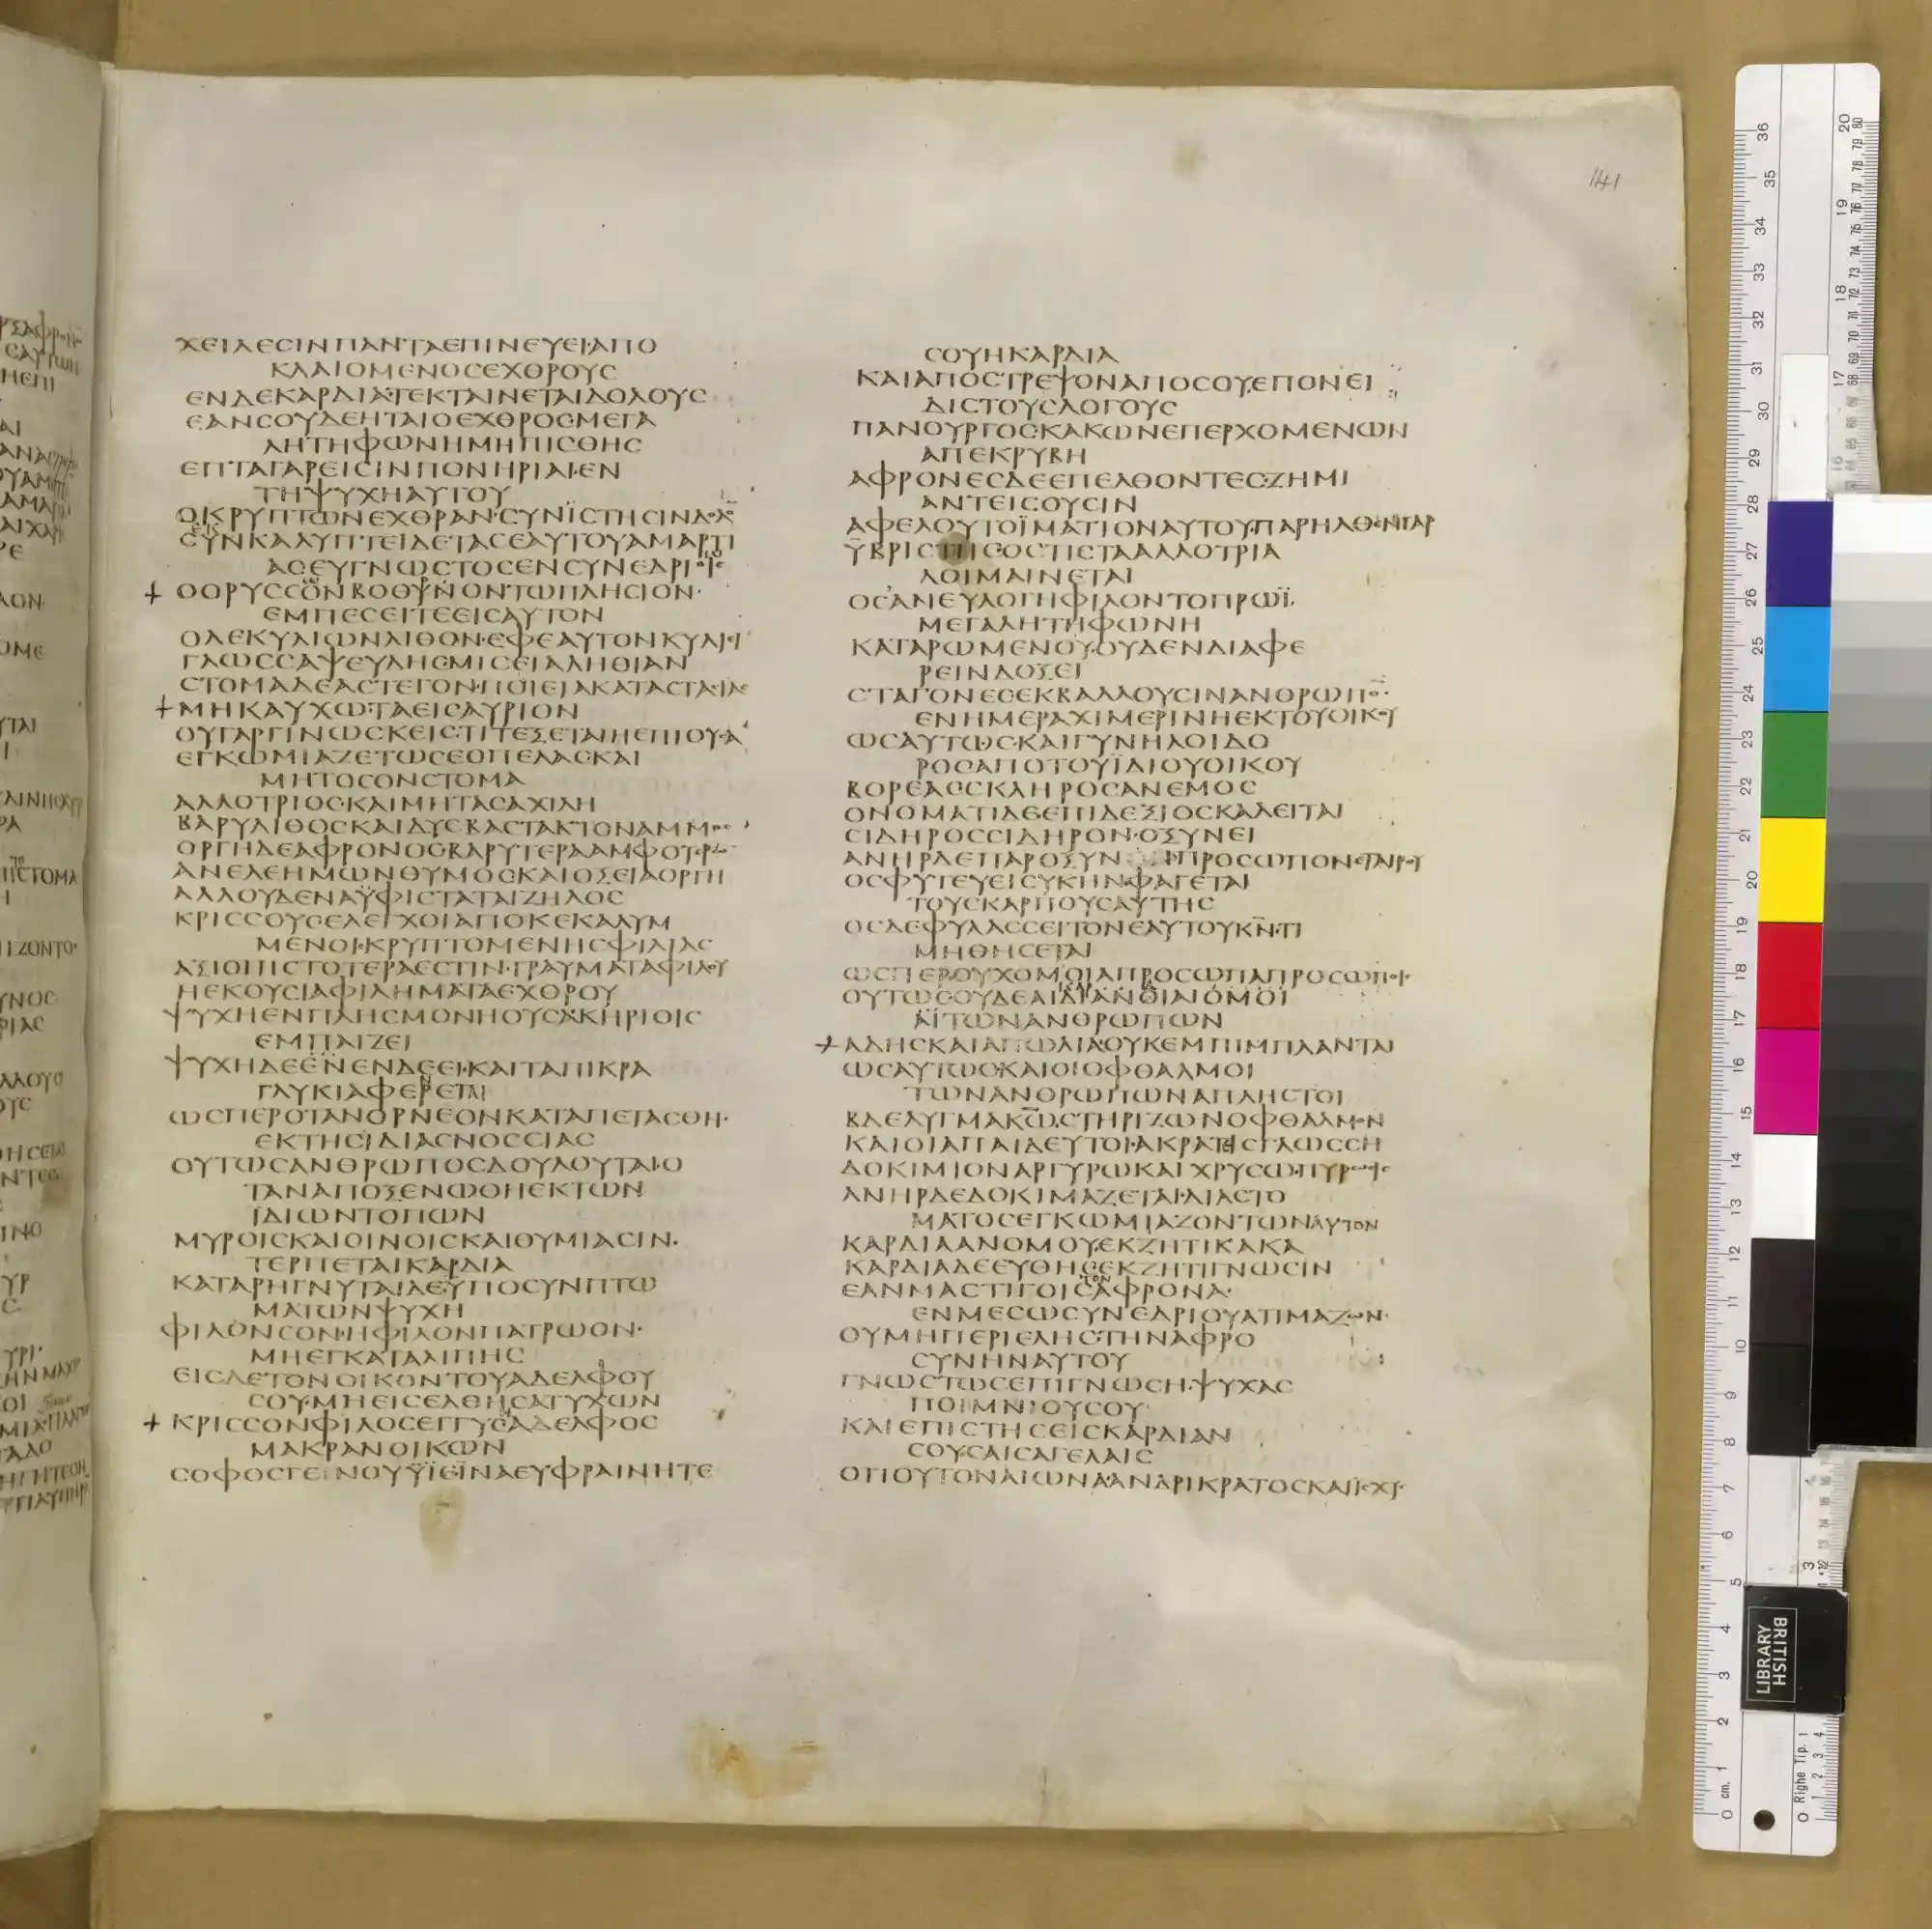 ΧΕΙΛΕϹΙΝΠΑΝΤΑΕΠΙΝΕΥΕΙ·ΑΠΟ
ΚΛΑΙΟΜΕΝΟϹΕΧΘΡΟΥϹ
ΕΝΔΕΚΑΡΔΙΑ·ΤΕΚΤΑΙΝΕΤΑΙΔΟΛΟΥϹ
ΕΑΝϹΟΥΔΕΗΤΑΙΟΕΧΘΡΟϹΜΕΓΑ
ΛΗΤΗΦΩΝΗΜΗΠΙϹΘΗϹ
ΕΠΤΑΓΑΡΕΙϹΙΝΠΟΝΗΡΙΑΙ·ΕΝ
ΤΗΨΥΧΗΑΥΤΟΥ
ΟΚΡΥΠΤΩΝΕΧΘΡΑΝ·ϹΥΝΪϹΤΗϹΙΝΔΟΛΟ
ΑϹΕΥΓΝΩϹΤΟϹΕΝϹΥΝΕΔΡΙΟΙϹ
ΕΜΠΕϹΕΙΤΕΕΙϹΑΥΤΟΝ
ΟΔΕΚΥΛΙΩΝΛΙΘΟΝ·ΕΦΕΑΥΤΟΝΚΥΛΙΙ
ΓΛΩϹϹΑΨΕΥΔΗϹΜΙϹΕΙΑΛΗΘΙΑΝ
ϹΤΟΜΑΔΕΑϹΤΕΓΟΝ·ΠΟΙΕΙΑΚΑΤΑϹΤΑϹΙΑϹ
ΜΗΚΑΥΧΩΤΑΕΙϹΑΥΡΙΟΝ
ΟΥΓΑΡΓΙΝΩϹΚΕΙϹ·ΤΙΤΕΞΕΤΑΙΗΕΠΙΟΥϹΑ
ΕΓΚΩΜΙΑΖΕΤΩϹΕΟΠΕΛΑϹ·ΚΑΙ
ΜΗΤΟϹΟΝϹΤΟΜΑ
ΑΛΛΟΤΡΙΟϹ·ΚΑΙΜΗΤΑϹΑΧΙΛΗ
ΒΑΡΥΛΙΘΟϹΚΑΙΔΥϹΒΑϹΤΑΚΤΟΝΑΜΜΟϹ
ΟΡΓΗΔΕΑΦΡΟΝΟϹΒΑΡΥΤΕΡΑΑΜΦΟΤΕΡΩ
ΑΝΕΛΕΗΜΩΝΘΥΜΟϹΚΑΙΟΞΕΙΑΟΡΓΗ
ΑΛΛΟΥΔΕΝΑΫΦΙϹΤΑΤΑΙΖΗΛΟϹ
ΚΡΙϹϹΟΥϹΕΛΕΓΧΟΙΑΠΟΚΕΚΑΛΥΜ
ΜΕΝΟΙ·ΚΡΥΠΤΟΜΕΝΗϹΦΙΛΙΑϹ
ΑΞΙΟΠΙϹΤΟΤΕΡΑΕϹΤΙΝ·ΤΡΑΥΜΑΤΑΦΙΛΟΥ
ΗΕΚΟΥϹΙΑΦΙΛΗΜΑΤΑΕΧΘΡΟΥ
ΨΥΧΗΕΝΠΛΗϹΜΟΝΗΟΥϹΑΚΗΡΙΟΙϹ
ΕΜΠΑΙΖΕΙ
ΨΥΧΗΔΕΕΝΕΝΔΕΕΙ·ΚΑΙΤΑΠΙΚΡΑ
ΓΛΥΚΙΑΦΕΡΕΤΑΙ
ΩϹΠΕΡΟΤΑΝΟΡΝΕΟΝΚΑΤΑΠΕΤΑϹΘΗ·
ΕΚΤΗϹΙΔΙΑϹΝΟϹϹΙΑϹ
ΟΥΤΩϹΑΝΘΡΩΠΟϹΔΟΥΛΟΥΤΑΙ·Ο
ΤΑΝΑΠΟΞΕΝΩΘΗΕΚΤΩΝ
ΪΔΙΩΝΤΟΠΩΝ
ΜΥΡΟΙϹΚΑΙΟΙΝΟΙϹΚΑΙΘΥΜΙΑϹΙΝ·
ΤΕΡΠΕΤΑΙΚΑΡΔΙΑ
ΚΑΤΑΡΗΓΝΥΤΑΙΔΕΥΠΟϹΥΝΠΤΩ
ΜΑΤΩΝΨΥΧΗ
ΦΙΛΟΝϹΟΝ·ΗΦΙΛΟΝΠΑΤΡΩΟΝ·
ΜΗΕΓΚΑΤΑΛΙΠΗϹ
ΕΙϹΔΕΤΟΝΟΙΚΟΝΤΟΥΑΔΕΛΦΟΥ
ϹΟΥ·ΜΗΕΙϹΕΛΘΗϹΑΤΥΧΩΝ
ΚΡΙϹϹΟΝΦΙΛΟϹΕΓΓΥϹΑΔΕΛΦΟϹ
ΜΑΚΡΑΝΟΙΚΩΝ
ϹΟΦΟϹΓΕΙΝΟΥΫΪΕΪΝΑΕΥΦΡΑΙΝΗΤΕ
ϹΟΥΗΚΑΡΔΙΑ
ΚΑΙΑΠΟϹΤΡΕΨΟΝΑΠΟϹΟΥ·ΕΠΟΝΕΙ
ΔΙϹΤΟΥϹΛΟΓΟΥϹ
ΠΑΝΟΥΡΓΟϹ·ΚΑΚΩΝΕΠΕΡΧΟΜΕΝΩΝ
ΑΠΕΚΡΥΒΗ
ΑΦΡΟΝΕϹΔΕΕΠΕΛΘΟΝΤΕϹ·ΖΗΜΙ
ΑΝΤΕΙϹΟΥϹΙΝ
ΑΦΕΛΟΥΤΟΪΜΑΤΙΟΝΑΥΤΟΥ·ΠΑΡΗΛΘΕΝΓΑΡ
ΫΒΡΙϹΤΗϹΟϹΤΙϹΤΑΑΛΛΟΤΡΙΑ
ΛΟΙΜΑΙΝΕΤΑΙ
ΟϹΑΝΕΥΛΟΓΗΦΙΛΟΝΤΟΠΡΩΪ·
ΜΕΓΑΛΗΤΗΦΩΝΗ
ΚΑΤΑΡΩΜΕΝΟΥ·ΟΥΔΕΝΔΙΑΦΕ
ΡΕΙΝΔΟΞΕΙ
ϹΤΑΓΟΝΕϹΕΚΒΑΛΛΟΥϹΙΝΑΝΘΡΩΠΟ
ΕΝΗΜΕΡΑΧΙΜΕΡΙΝΗΕΚΤΟΥΟΙΚΟΥ
ΩϹΑΥΤΩϹ·ΚΑΙΓΥΝΗΛΟΙΔΟ
ΡΟϹΑΠΟΤΟΥΪΔΙΟΥΟΙΚΟΥ
ΒΟΡΕΑϹϹΚΛΗΡΟϹΑΝΕΜΟϹ
ΟΝΟΜΑΤΙΔΕΕΠΙΔΕΞΙΟϹΚΑΛΕΙΤΑΙ
ϹΙΔΗΡΟϹϹΙΔΗΡΟΝ·ΟΞΥΝΕΙ
ΟϹΦΥΤΕΥΕΙϹΥΚΗΝ·ΦΑΓΕΤΑΙ
ΤΟΥϹΚΑΡΠΟΥϹΑΥΤΗϹ
ΟϹΔΕΦΥΛΑϹϹΕΙΤΟΝΕΑΥΤΟΥΚΝ·ΤΙ
ΜΗΘΗϹΕΤΑΙ
ΩϹΠΕΡΟΥΧΟΜΟΙΑΠΡΟϹΩΠΑΠΡΟϹΩΠΟΙϹ
ΤΩΝΑΝΘΡΩΠΩΝ
ΑΔΗϹΚΑΙΑΠΩΛΙΑ·ΟΥΚΕΜΠΙΜΠΛΑΝΤΑΙ
ΩϹΑΥΤΩϹΚΑΙΟΙΟΦΘΑΛΜΟΙ
ΤΩΝΑΝΘΡΩΠΩΝΑΠΛΗϹΤΟΙ
ΒΔΕΛΥΓΜΑΚΩ·ϹΤΗΡΙΖΩΝΟΦΘΑΛΜΟΝ
ΚΑΙΟΙΑΠΑΙΔΕΥΤΟΙ·ΑΚΡΑΤΕΙϹΓΛΩϹϹΗ
ΔΟΚΙΜΙΟΝΑΡΓΥΡΩΚΑΙΧΡΥϹΩ·ΠΥΡΩϹΙϹ
ΑΝΗΡΔΕΔΟΚΙΜΑΖΕΤΑΙ·ΔΙΑϹΤΟ
ΜΑΤΟϹΕΓΚΩΜΙΑΖΟΝΤΩΝΑΥΤΟΝ
ΚΑΡΔΙΑΑΝΟΜΟΥ·ΕΚΖΗΤΙΚΑΚΑ
ΚΑΡΔΙΑΔΕΕΥΘΗϹΕΚΖΗΤΙΓΝΩϹΙΝ
ΕΑΝΜΑϹΤΙΓΟΙϹΑΦΡΟΝΑ·
ΕΝΜΕϹΩϹΥΝΕΔΡΙΟΥΑΤΙΜΑΖΩΝ·
ΟΥΜΗΠΕΡΙΕΛΗϹ·ΤΗΝΑΦΡΟ
ϹΥΝΗΝΑΥΤΟΥ
ΓΝΩϹΤΩϹΕΠΙΓΝΩϹΗ·ΨΥΧΑϹ
ΠΟΙΜΝΙΟΥϹΟΥ·
ΚΑΙΕΠΙϹΤΗϹΕΙϹΚΑΡΔΙΑΝ
ϹΟΥ·ϹΑΙϹΑΓΕΛΑΙϹ
ΟΤΙΟΥΤΟΝΑΙΩΝΑ·ΑΝΔΡΙΚΡΑΤΟϹΚΑΙΪϹΧΥϹ
141
BRITISH
LIBRARY